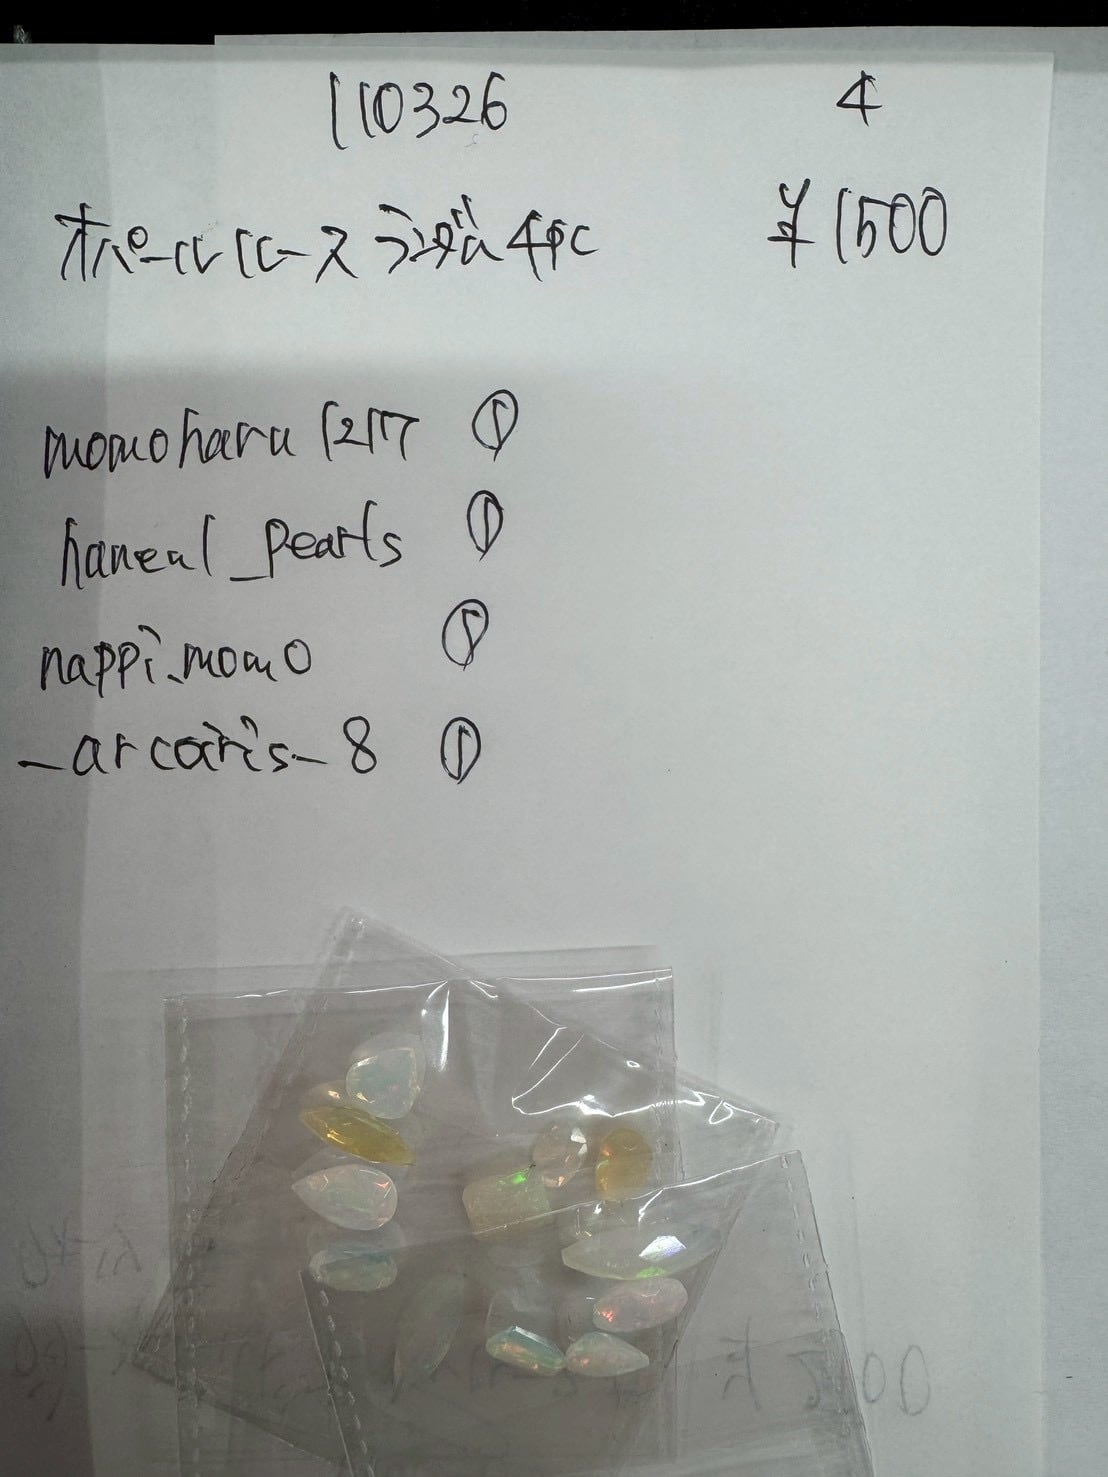 110326 4
オパールルースランダム4pc ¥1500
momoharu1217 ①
haneul_pearls ①
nappi.momo ①
_arcaris_8 ①